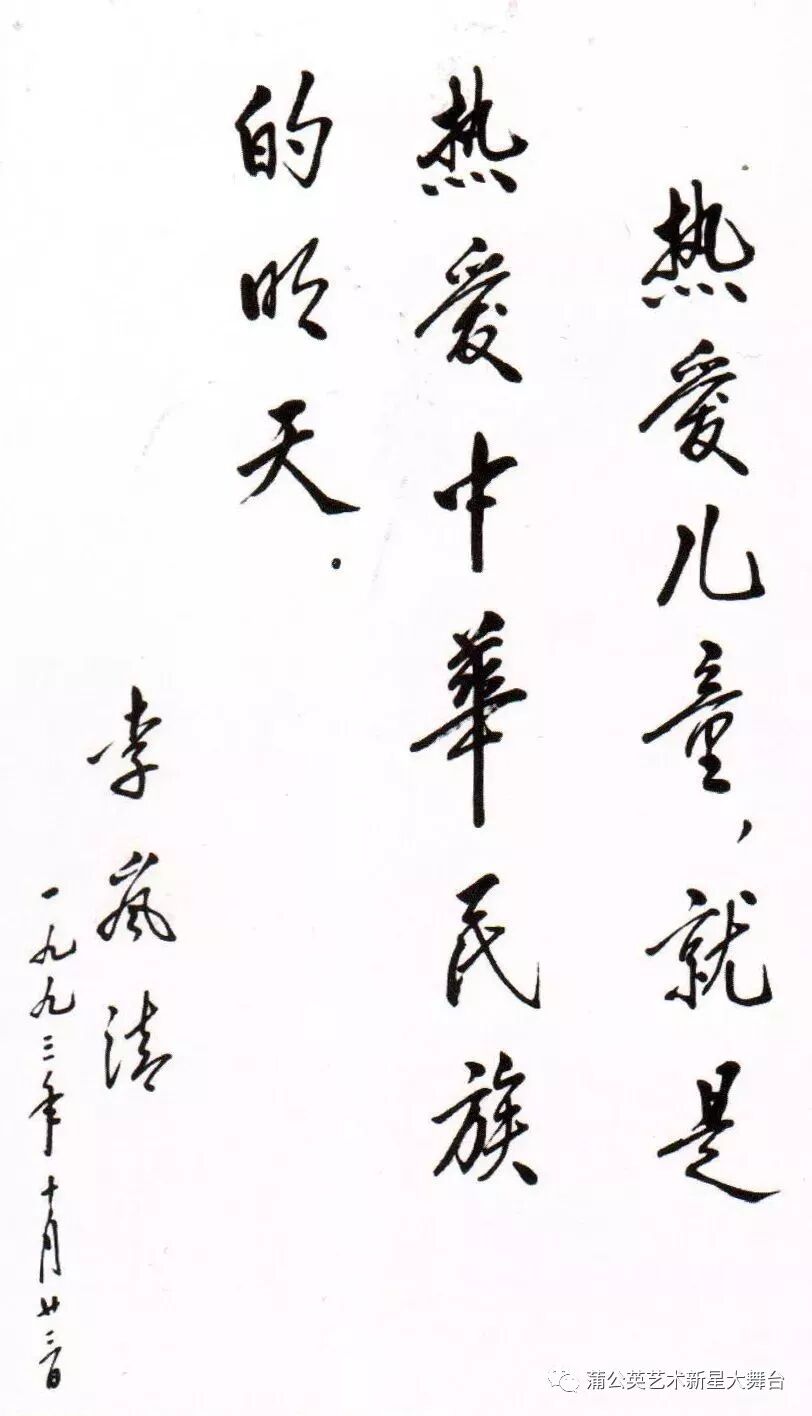 热爱儿童，就是
热爱中華民族
的明天.
李岚清
一九九三年十月廿三日
蒲公英艺术新星大舞台